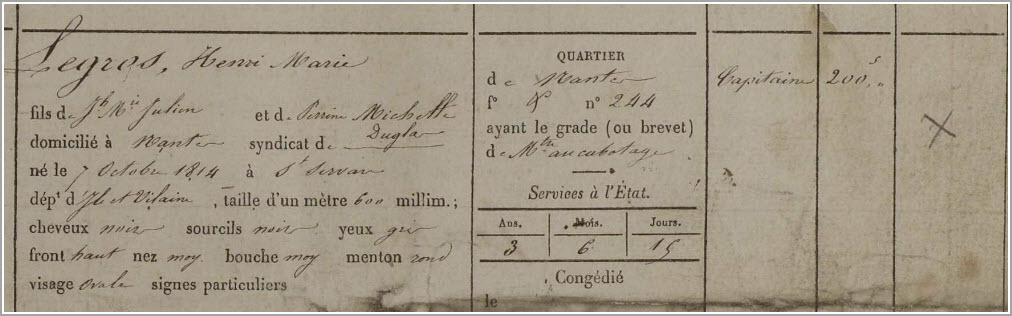 Legros, Henri Marie
fils de Jh Mie Julien et de Perrine Michelle Dugla
domicilié à Nantes syndicat de
né le 7 Octobre 1814 à St Servan
dépt d'Ile et Vilaine, taille d'un mètre 600 millim.;
cheveux noirs sourcils noirs yeux gris
front haut nez moy. bouche moy menton rond
visage ovale signes particuliers
QUARTIER
de Nantes
fo n° 244
ayant le grade (ou brevet)
de Mtre au cabotage
Services à l'État.
Ans. Mois. Jours.
3 6 15
Congédié
le
Capitaine 200
X